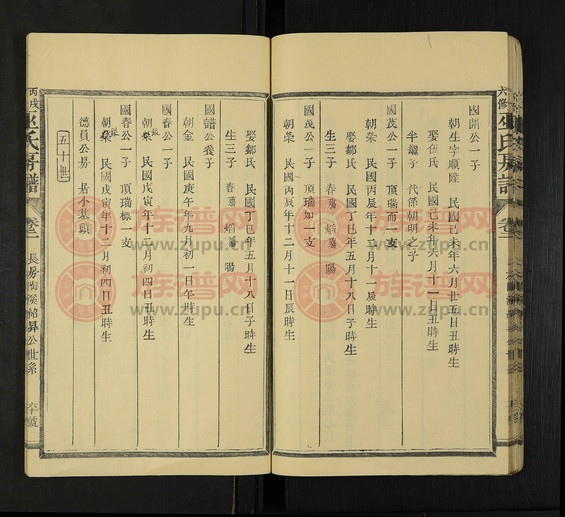 六修巫氏房譜 卷二
國開公一子
朝生字順陞 民國己未年六月廿五日丑時生
娶伍氏 民國己未年六月十一日丑時生
半耀子 代係朝明之子
國茂公一子 頂瑞而一支
朝棠 民國丙辰年十二月十一辰時生
娶鄒氏 民國丁巳年五月十八日子時生
生三子
國茂公一子 頂瑞如一支
朝棠 民國丙辰年十二月十一日辰時生
娶鄒氏 民國丁巳年五月十八日子時生
生三子
國譜公養子
朝金 民國庚午年九月初一日午時生
國春公一子
朝 民國戊寅年十二月初四丑時生
國春公一子 頂瑞標一支
朝 民國戊寅年十二月初四日丑時生
五十世
德員公房 居小基頭
丙戌巫氏房譜 卷二 長房陶溪 昇公世系 六十號
族譜网
www.zupu.cn
族譜网
www.zupu.cn
族譜网
www.zupu.cn
族譜网
www.zupu.cn